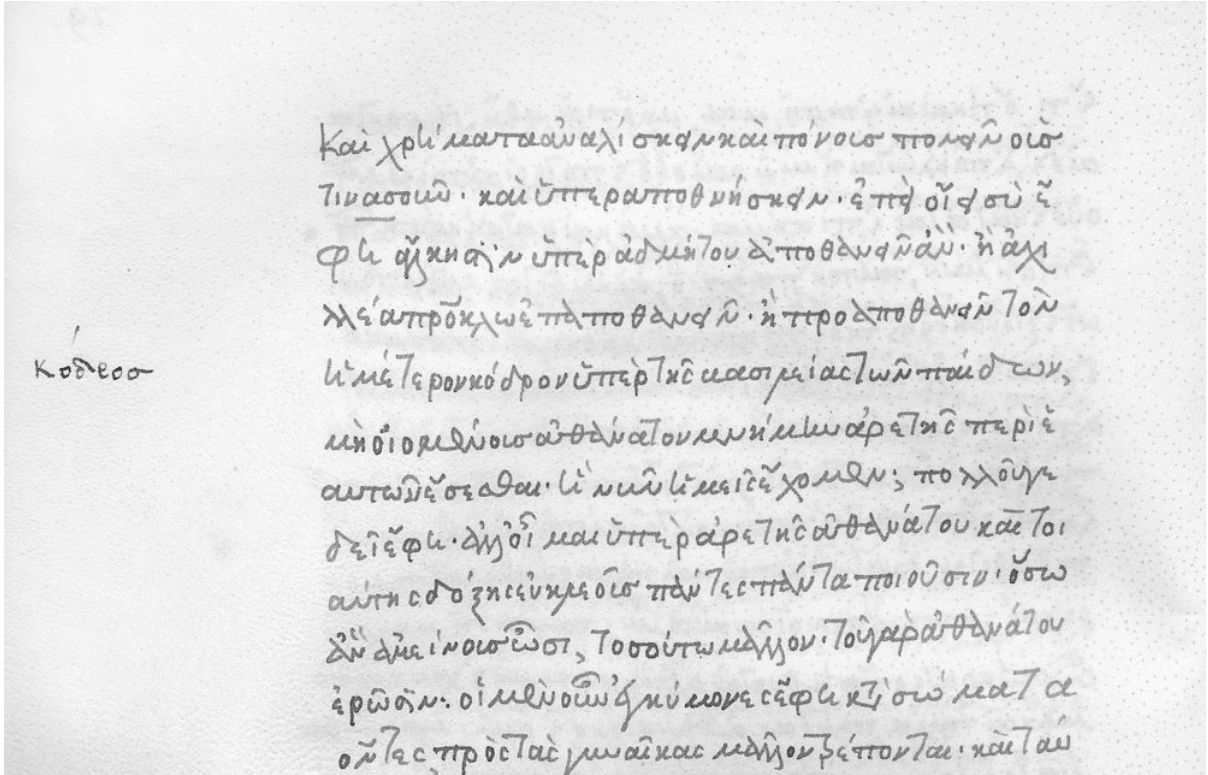 καὶ χρήματα ἀναλίσκειν καὶ πόνουσ πονεῖν οὑσ
τινασοῦν· καὶ ὑπεραποθνήσκειν· ἐπεὶ οἴει σὺ ἔ
φη ἄλκηστιν ὑπὲρ ἀδμήτου ἀποθανεῖν ἂν· ἢ ἀχι
λλέα πατρόκλω ἐπαποθανεῖν· ἢ προαποθανεῖν τὸν
κόδροσ
ὑμέτερον κόδρον ὑπὲρ τῆς βασιλείας τῶν παίδων,
μὴ οἰομένουσ ἀθάνατον μνήμην ἀρετῆς περὶ ἑ
αυτῶν ἔσεσθαι· ἣν νῦν ἡμεῖς ἔχομεν; πολλοῦ γε
δεῖ ἔφη· ἀλλ' οἶμαι ὑπὲρ ἀρετῆς ἀθανάτου καὶ τοι
αύτης δόξης εὐκλεοῦσ πάντες πάντα ποιοῦσιν· ὅσω
ἂν ἀμείνουσ ὦσι, τοσούτω μᾶλλον· τοῦ γὰρ ἀθανάτου
ἐρῶσιν· οἱ μὲν οὖν ἐγκύμονες ἔφη κατὰ σώματα
ὄντες πρὸς τὰς γυναῖκας μᾶλλον τρέπονται· καὶ ταύ